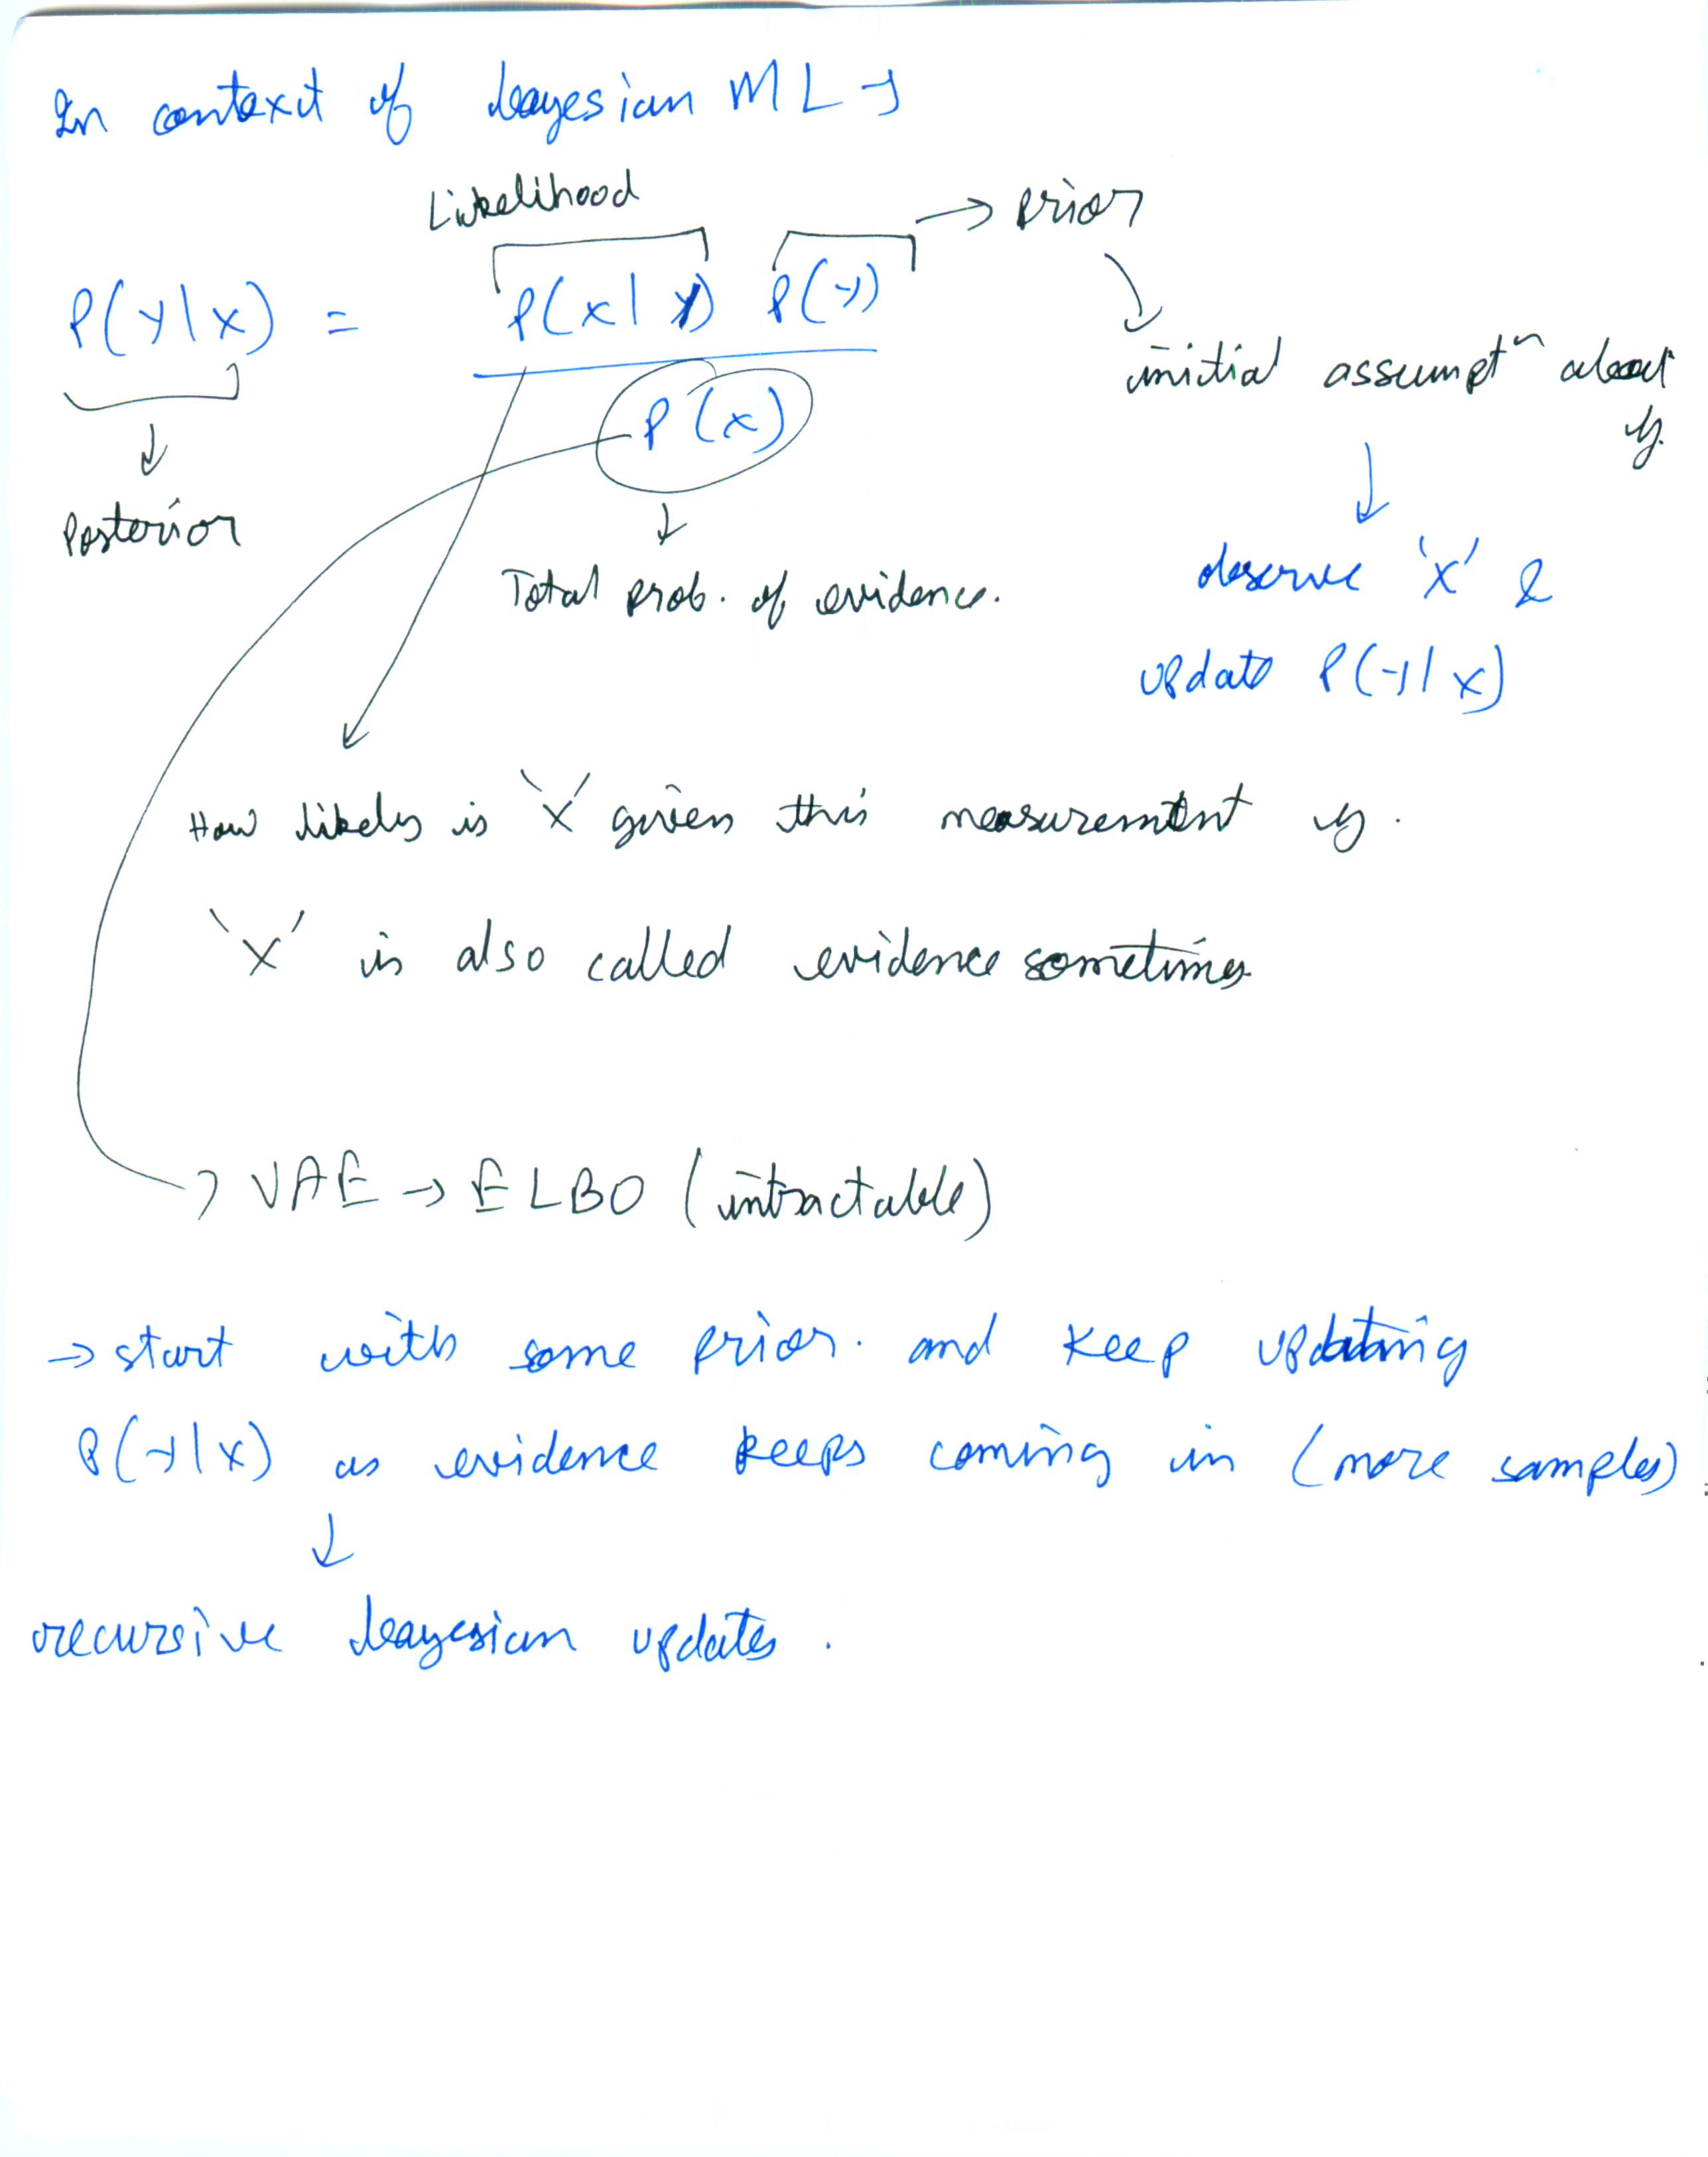 In context of bayesian ML →
Likelihood
→ prior
P(y|x) = P(x|y) P(y)
P(x)
initial assumptⁿ about
y.
Posterior
Total prob. of evidence.
observe 'x' &
update P(y|x)
How likely is 'x' given this measurement y.
'x' is also called evidence sometimes
→ VAE → ELBO (intractable)
→ start with some prior. and keep updating
P(y|x) as evidence keeps coming in (more samples)
recursive bayesian updates.